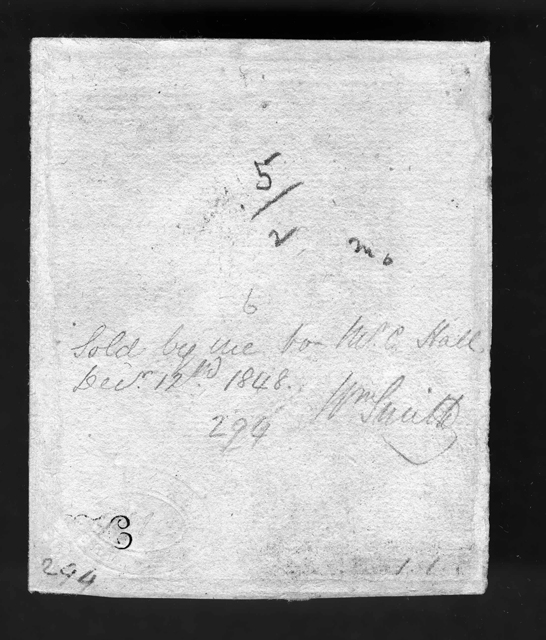 5/
2 mo
6
Sold by me to Mr. C. Hall
Decr. 12th 1848.
Wm Smith
294
C
294